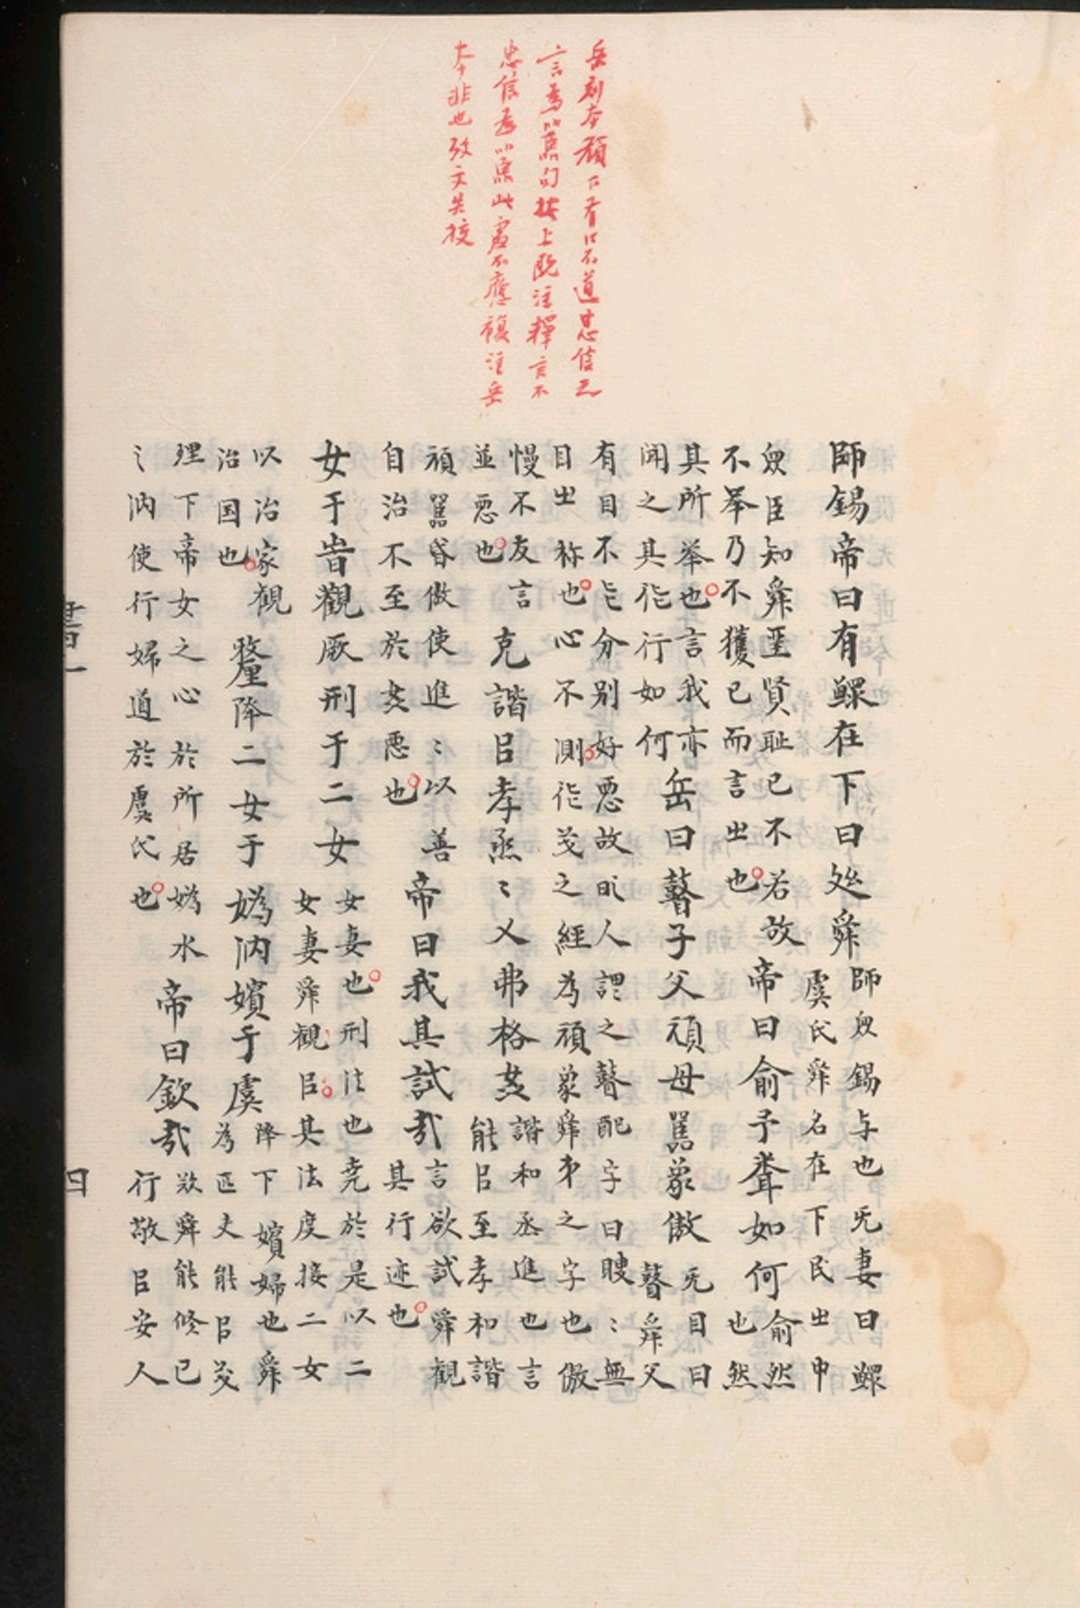 岳刻本頑下有口不道忠信之
言為嚚句按上既注釋言不
忠信為嚚此處不應複注岳
本非也攷文失校
師錫帝曰有鰥在下曰処舜
師眾錫与也无妻曰鰥
虞氏舜名在下民㞢中
眾臣知舜聖賢恥已不若故
不举乃不獲已而言㞢也
帝曰俞予聋如何
俞然
也然
其所举也言我亦
聞之其㑅行如何
岳曰瞽子父頑母嚚象傲
无目曰
瞽舜父
有目不㠯分别好惡故时人謂之瞽配字曰瞍〻無
目㞢称也心不測㑅茂之經為頑象舜弟之字也傲
慢不友言
並惡也
克諧㠯孝烝〻乂弗格姦
諧和烝進也言
能㠯至孝和諧
頑嚚昏傲使進〻以善
自治不至於姦惡也
帝曰我其試哉
言欲試舜觀
其行迹也
女于旹觀厥刑于二女
女妻也刑法也堯於是以二
女妻舜觀㠯其法度接二女
以治家觀
治国也
釐降二女于媯汭嬪于虞
降下嬪婦也舜
為匹夫能㠯义
理下帝女之心於所居媯水
之汭使行婦道於虞氏也
帝曰欽哉
歎舜能修已
行敬㠯安人
書一
四